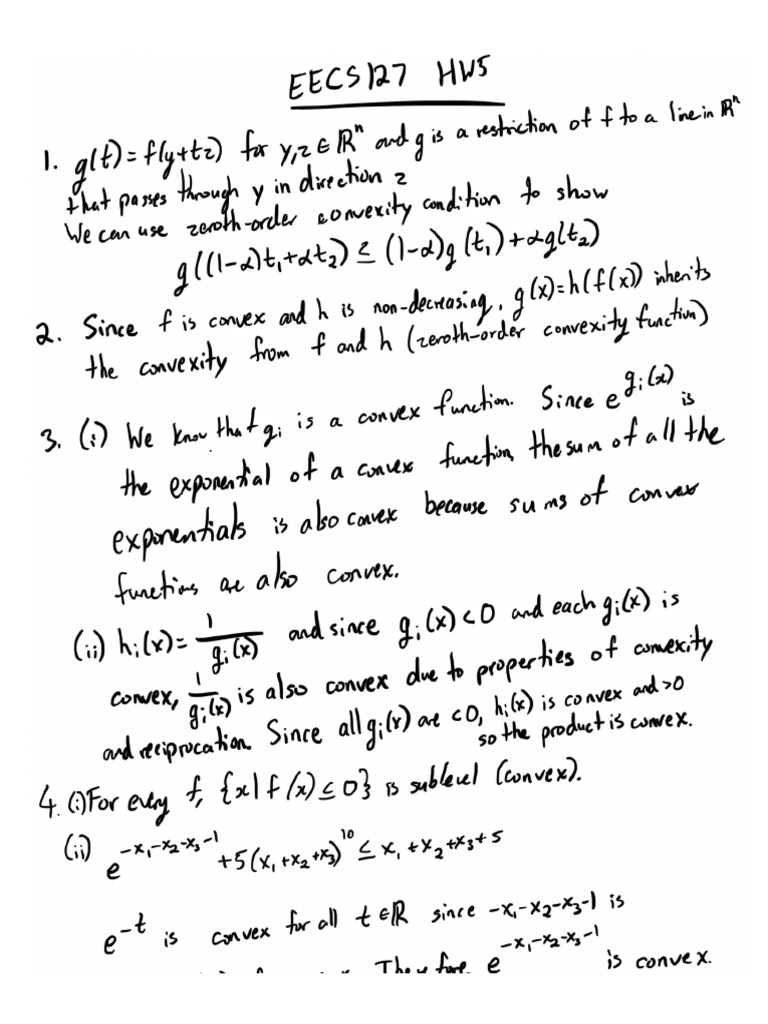 EECS127 HW5
1. g(t)=f(y+tz) for y,z∈ℝⁿ and g is a restriction of f to a line in ℝⁿ
that passes through y in direction z
We can use zeroth-order convexity condition to show
g((1-α)t₁+αt₂) ≤ (1-α)g(t₁)+αg(t₂)
2. Since f is convex and h is non-decreasing, g(x)=h(f(x)) inherits
the convexity from f and h (zeroth-order convexity function)
3. (i) We know that gᵢ is a convex function. Since e^{gᵢ(x)} is
the exponential of a convex function, the sum of all the
exponentials is also convex because sums of convex
functions are also convex.
(ii) hᵢ(x)= 1/gᵢ(x) and since gᵢ(x)<0 and each gᵢ(x) is
convex, 1/gᵢ(x) is also convex due to properties of convexity
and reciprocation. Since all gᵢ(x) are <0, hᵢ(x) is convex and >0
so the product is convex.
4. (i) For every f, {x|f(x)≤0} is sublevel (convex).
(ii) e^{-x₁-x₂-x₃-1} +5(x₁+x₂+x₃)¹⁰ ≤ x₁+x₂+x₃+5
e^{-t} is convex for all t∈ℝ since -x₁-x₂-x₃-1 is
Therefore e^{-x₁-x₂-x₃-1} is convex.